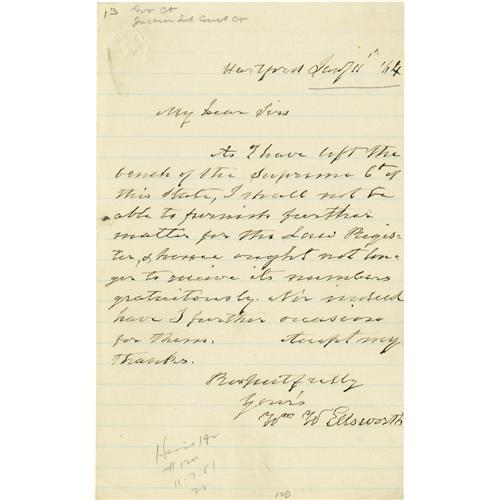 13
Gov Ct
Justice Sup Court Ct
Hartford Jany 11th '64
My Dear Sirs
As I have left the
bench of the Supreme Ct of
this State, I shall not be
able to furnish further
matter for the Law Regis-
ter, & hence ought not lon-
ger to receive its numbers
gratuitously. Nor indeed
have I further occasion
for them. Accept my
thanks.
Respectfully
Your's
Wm W Ellsworth
#120
11-7-51
120